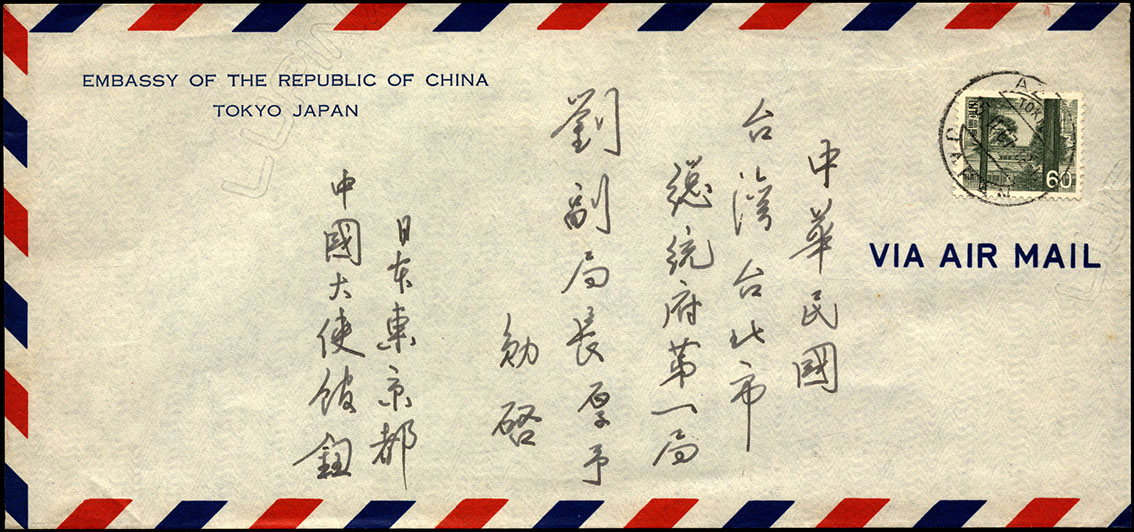 EMBASSY OF THE REPUBLIC OF CHINA
TOKYO JAPAN
60
VIA AIR MAIL
中華民國
台灣台北市
總統府第一局
劉副局長厚予
勛啓
日本東京都
中國大使館